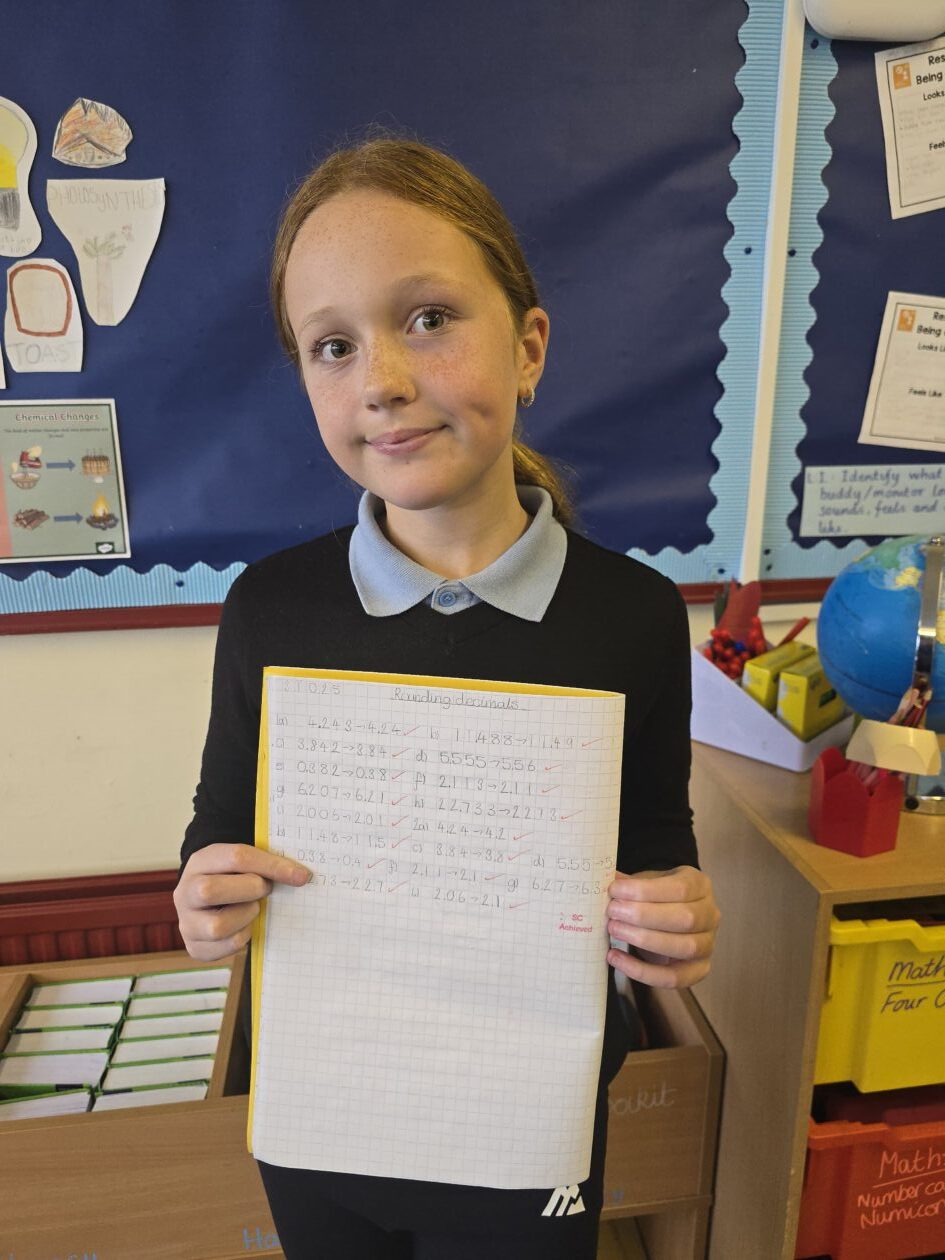 PHOTOSYNTHES
TOAST
Chemical Changes
Res
Being
Looks
Feels
Res
Being
Looks Li
Feels Like
L.I. Identify what
buddy/monitor lo
sounds, feels and
like.
.10.25 Rounding decimals
1a) 4.243→4.24 ✓ b) 11.488→11.49 ✓
c) 3.842→3.84 ✓ d) 5.555→5.56 ✓
e) 0.382→0.38 ✓ f) 2.113→2.11 ✓
g) 6.207→6.21 ✓ h) 22.733→22.73 ✓
i) 2.005→2.01 ✓ 2a) 4.24→4.2 ✓
b) 11.48→11.5 ✓ c) 3.84→3.8 ✓ d) 5.55→5
0.38→0.4 ✓ f) 2.11→2.1 ✓ g) 6.27→6.3
2.73→22.7 ✓ i) 2.06→2.1 ✓
SC
Achieved
Math
Four O
Maths
Number co
Numicon